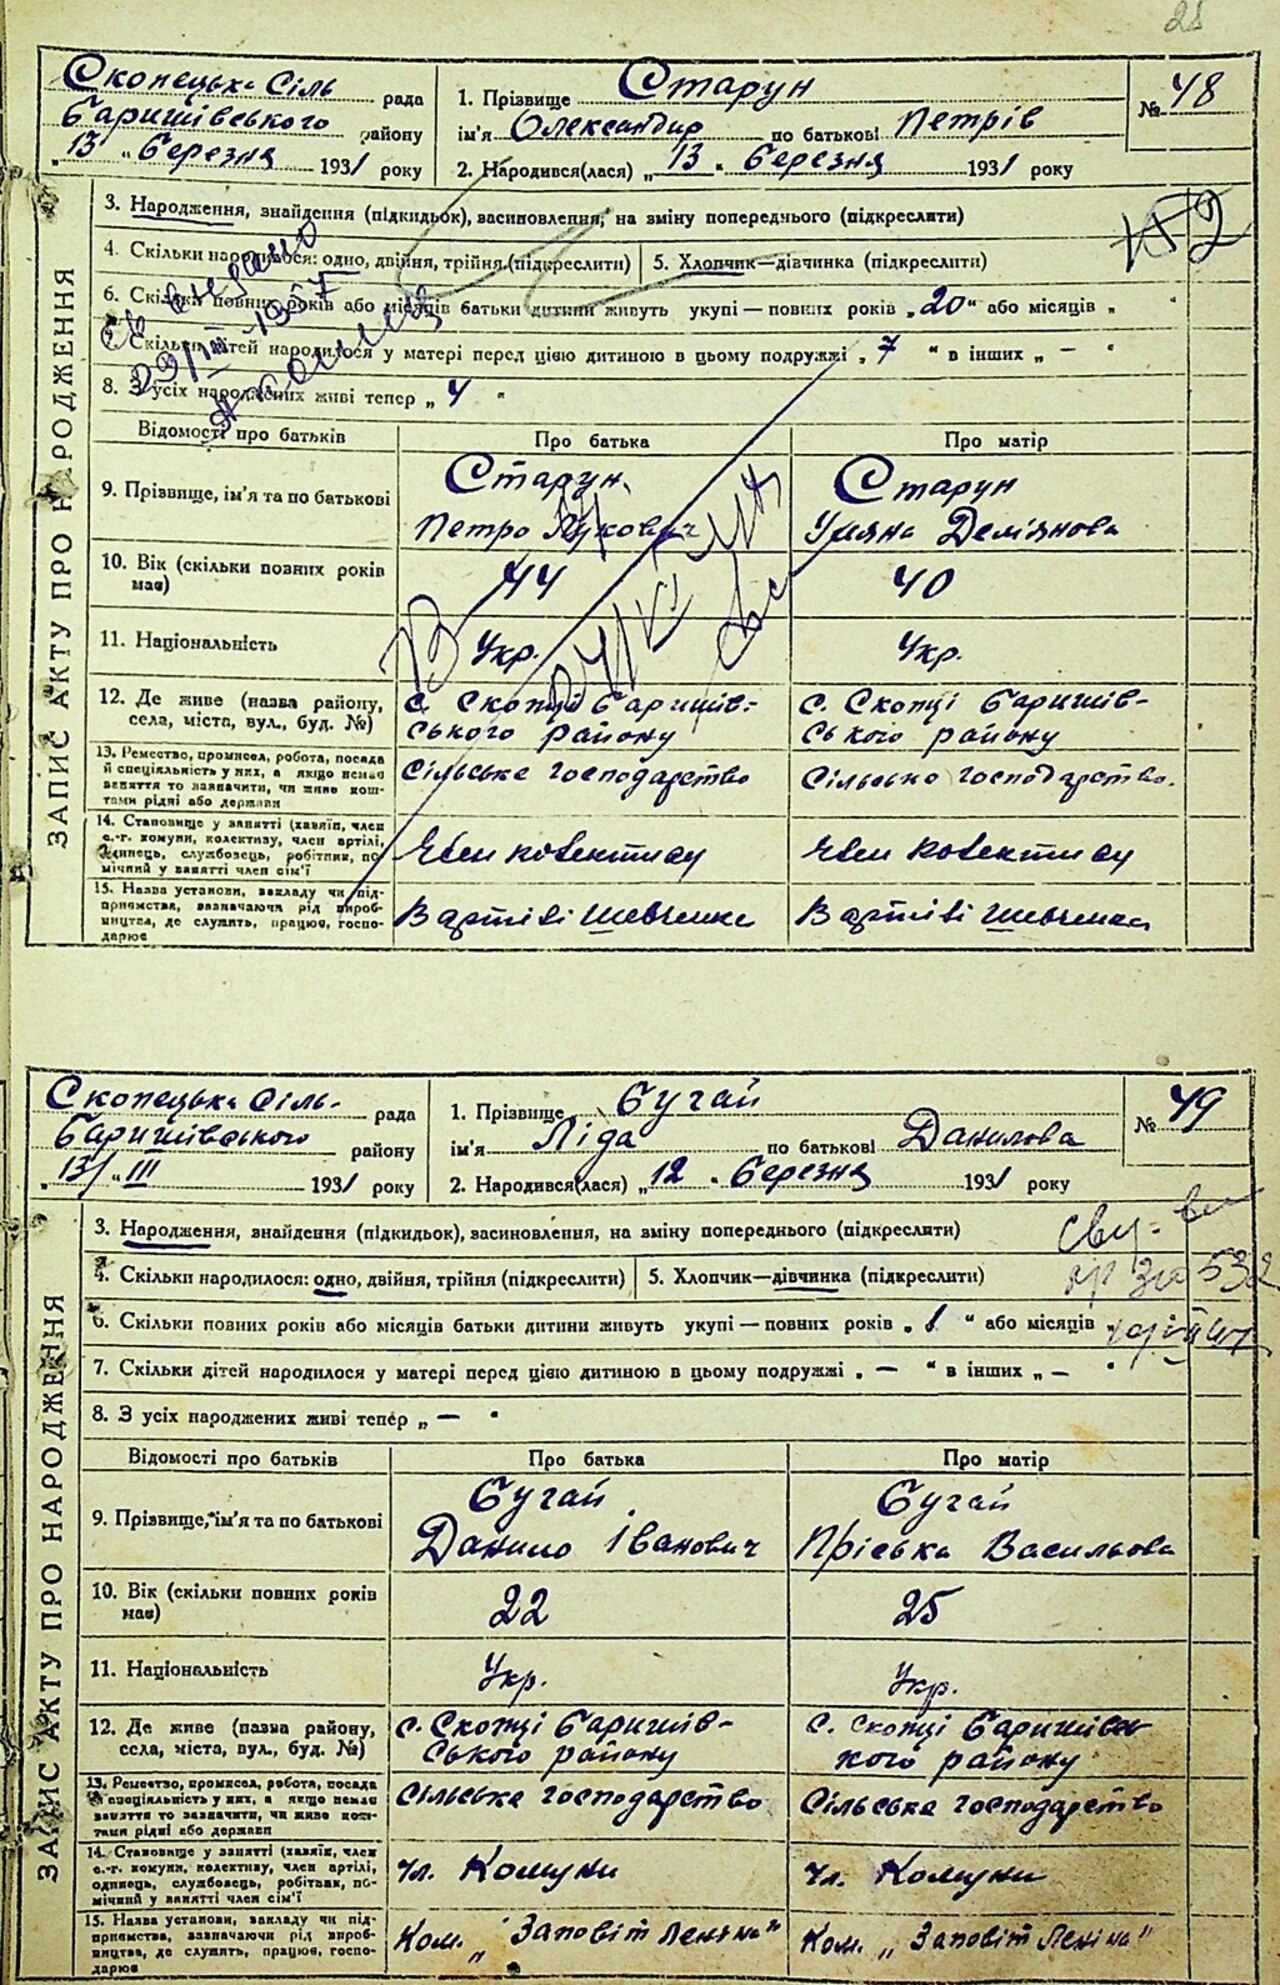 25
Скопецька Сіль рада
Баришівського району
"13" Березня 1931 року
1. Прізвище Старун
ім'я Олександир по батькові Петрів
2. Народився(лася) "13" Березня 1931 року
№ 48
ЗАПИС АКТУ ПРО НАРОДЖЕННЯ
3. Народження, знайдення (підкидьок), васиновлення, на зміну попереднього (підкреслити)
4. Скільки народилося: одно, двійня, трійня (підкреслити)
5. Хлопчик—дівчинка (підкреслити)
6. Скільки повних років або місяців батьки дитини живуть укупі — повних років „20“ або місяців „ “
7. Скільки дітей народилося у матері перед цією дитиною в цьому подружжі „7“ в інших „—“
8. З усіх народжених живі тепер „4“
Відомості про батьків Про батька Про матір
9. Прізвище, ім'я та по батькові
Старун Петро Лукович
Старун Уляна Демʼянова
10. Вік (скільки повних років має)
44
40
11. Національність
Укр.
Укр.
12. Де живе (назва району, села, міста, вул., буд. №)
с. Скопці Баришів-
ського району
с. Скопці Баришів-
ського району
13. Ремество, промисел, робота, посада
й спеціяльність у них, а якщо немає
заняття то зазначити, чи живе кош-
тами рідні або держави
Сільське господарство
Сільсько господарство.
14. Становище у занятті (хавяїн, член
с.-г. комуни, колективу, член артілі,
одинець, службовець, робітник, по-
мічний у занятті член сім'ї
Член колективу
Член колективу
15. Назва установи, закладу чи під-
приємства, зазначаючи рід вироб-
ництва, де служить, працює, госпо-
дарює
В артілі Шевченка
В артілі Шевченка
Скопецька Сіль- рада
Баришівського району
"13/" III 1931 року
1. Прізвище Бугай
ім'я Ліда по батькові Данилова
2. Народився(лася) "12" Березня 1931 року
№ 49
ЗАПИС АКТУ ПРО НАРОДЖЕННЯ
3. Народження, знайдення (підкидьок), васиновлення, на зміну попереднього (підкреслити)
4. Скільки народилося: одно, двійня, трійня (підкреслити)
5. Хлопчик—дівчинка (підкреслити)
6. Скільки повних років або місяців батьки дитини живуть укупі — повних років „1“ або місяців
7. Скільки дітей народилося у матері перед цією дитиною в цьому подружжі „—“ в інших „—“
8. З усіх народжених живі тепер „—“
Відомості про батьків Про батька Про матір
9. Прізвище, ім'я та по батькові
Бугай
Данило Іванович
Бугай
Пріська Васильова
10. Вік (скільки повних років має)
22
25
11. Національність
Укр.
Укр.
12. Де живе (назва району, села, міста, вул., буд. №)
с. Скопці Баришів-
ського району
с. Скопці Баришівсь-
кого району
13. Ремество, промисел, робота, посада
й спеціяльність у них, а якщо немає
заняття то зазначити, чи живе кош-
тами рідні або держави
Сільське господарство
Сільське господарство
14. Становище у занятті (хавяїн, член
с.-г. комуни, колективу, член артілі,
одинець, службовець, робітник, по-
мічний у занятті член сім'ї
Чл. Комуни
Чл. Комуни
15. Назва установи, закладу чи під-
приємства, зазначаючи рід вироб-
ництва, де служить, працює, госпо-
дарює
Ком. „Заповіт Леніна"
Ком. „Заповіт Леніна"